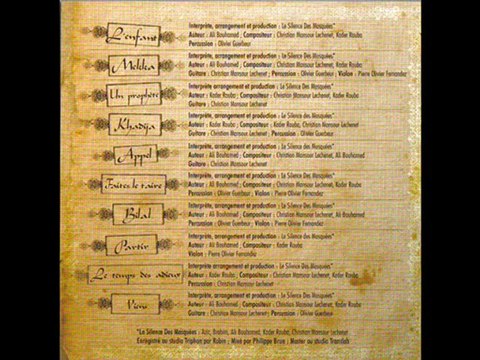 L'enfant
Interprète, arrangement et production : Le Silence Des Mosquées*
Auteur : Ali Bouhamed ; Compositeur : Christian Mansour Lechenet, Kader Rouba
Percussion : Olivier Gueboux
Mekka
Interprète, arrangement et production : Le Silence Des Mosquées*
Auteur : Ali Bouhamed ; Compositeur : Christian Mansour Lechenet, Kader Rouba
Guitare : Christian Mansour Lechenet ; Percussion : Olivier Gueboux ; Violon : Pierre Olivier Fernandez
Un prophète
Interprète, arrangement et production : Le Silence Des Mosquées*
Auteur : Kader Rouba ; Compositeur : Christian Mansour Lechenet, Kader Rouba
Guitare : Christian Mansour Lechenet
Khadija
Interprète, arrangement et production : Le Silence Des Mosquées*
Auteur : Kader Rouba ; Compositeur : Kader Rouba, Christian Mansour Lechenet
Guitare : Christian Mansour Lechenet ; Percussion : Olivier Gueboux
Appel
Interprète, arrangement et production : Le Silence Des Mosquées*
Auteur : Ali Bouhamed ; Compositeur : Christian Mansour Lechenet, Ali Bouhamed
Guitare : Christian Mansour Lechenet
Faites le taire
Interprète, arrangement et production : Le Silence Des Mosquées*
Auteur : Ali Bouhamed ; Compositeur : Christian Mansour Lechenet, Kader Rouba
Percussion : Olivier Gueboux ; Violon : Pierre Olivier Fernandez
Bilal
Interprète, arrangement et production : Le Silence Des Mosquées*
Auteur : Ali Bouhamed ; Compositeur : Christian Mansour Lechenet, Ali Bouhamed
Percussion : Olivier Gueboux ; Violon : Pierre Olivier Fernandez
Partir
Interprète, arrangement et production : Le Silence Des Mosquées*
Auteur : Ali Bouhamed ; Compositeur : Kader Rouba
Violon : Pierre Olivier Fernandez
Le temps des adieux
Interprète, arrangement et production : Le Silence Des Mosquées*
Auteur : Kader Rouba ; Compositeur : Christian Mansour Lechenet, Kader Rouba
Percussion : Christian Mansour Lechenet
Viens
Interprète, arrangement et production : Le Silence Des Mosquées*
Auteur : Ali Bouhamed ; Compositeur : Christian Mansour Lechenet, Kader Rouba
Guitare : Christian Mansour Lechenet ; Percussion : Olivier Gueboux
*Le Silence Des Mosquées : Aziz, Brahim, Ali Bouhamed, Kader Rouba, Christian Mansour Lechenet
Enregistré au studio Triphon par Robin ; Mixé par Philippe Brun ; Master au studio Translab